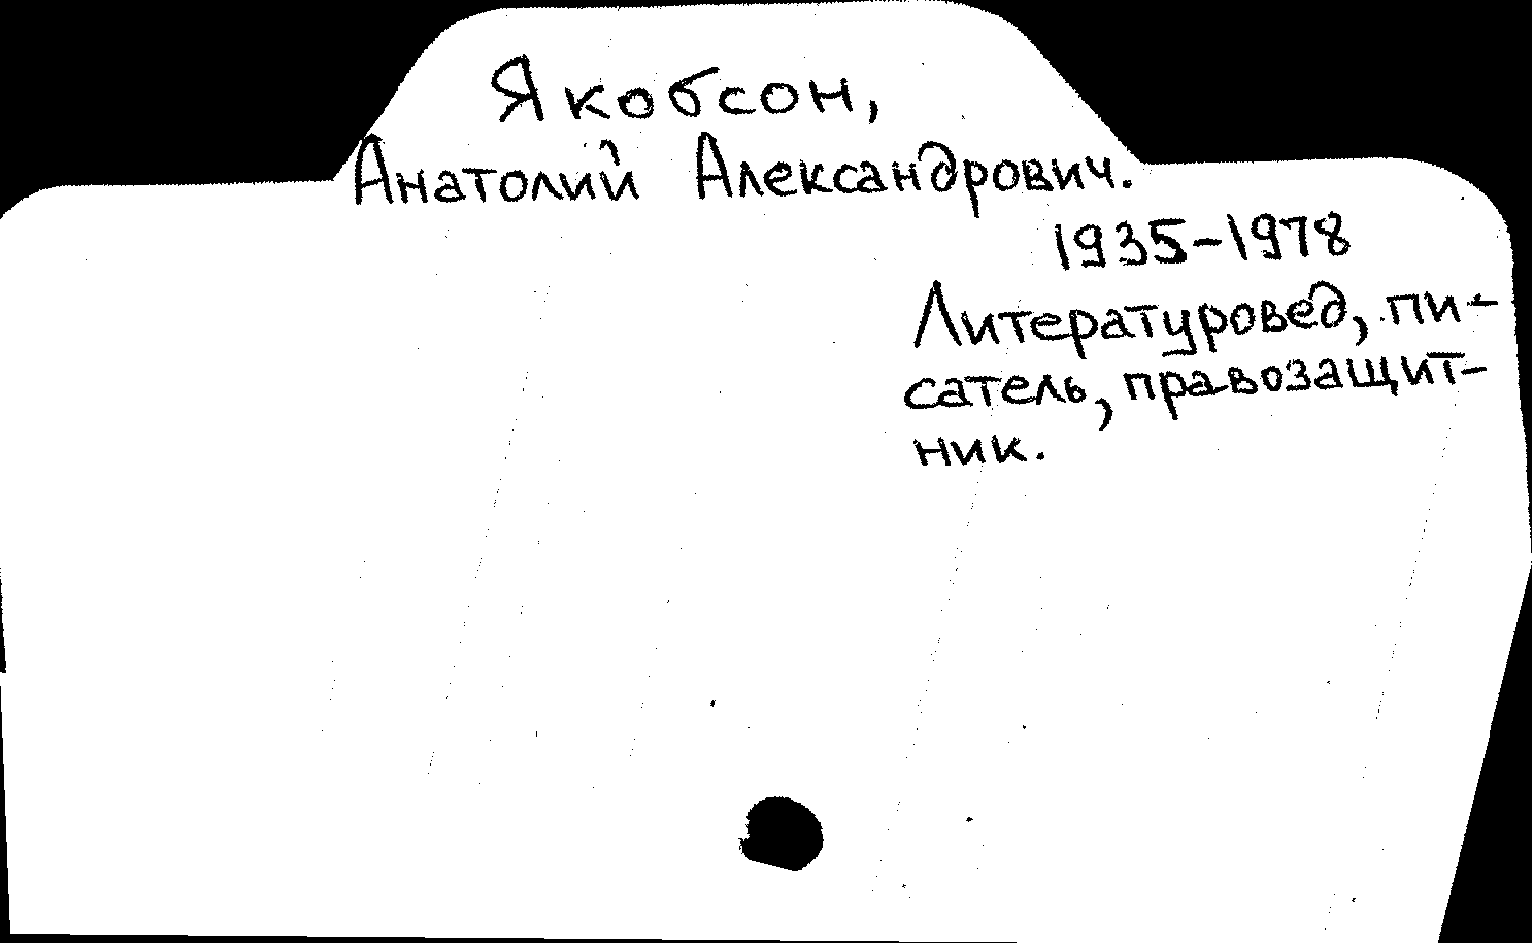 Якобсон,
Анатолий Александрович.
1935-1978
Литературовед, пи-
сатель, правозащит-
ник.